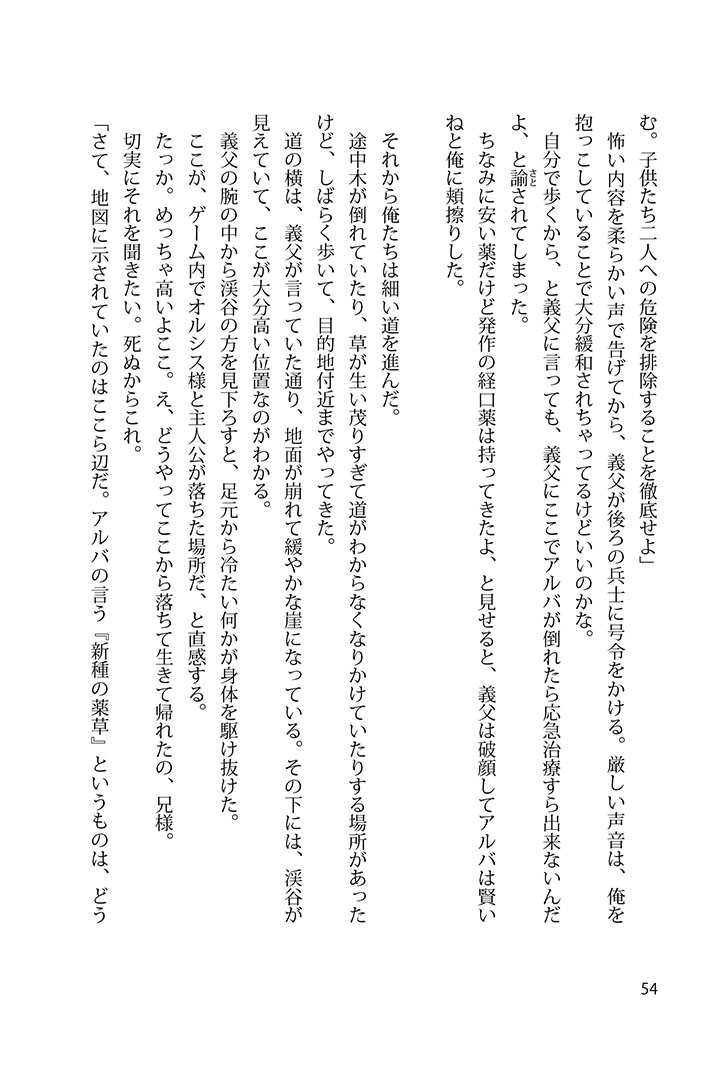 む。子供たち二人への危険を排除することを徹底せよ」
怖い内容を柔らかい声で告げてから、義父が後ろの兵士に号令をかける。厳しい声音は、俺を
抱っこしていることで大分緩和されちゃってるけどいいのかな。
自分で歩くから、と義父に言っても、義父にここでアルバが倒れたら応急治療すら出来ないんだ
よ、と諭されてしまった。
さと
ちなみに安い薬だけど発作の経口薬は持ってきたよ、と見せると、義父は破顔してアルバは賢い
ねと俺に頬擦りした。
それから俺たちは細い道を進んだ。
途中木が倒れていたり、草が生い茂りすぎて道がわからなくなりかけていたりする場所があった
けど、しばらく歩いて、目的地付近までやってきた。
道の横は、義父が言っていた通り、地面が崩れて緩やかな崖になっている。その下には、渓谷が
見えていて、ここが大分高い位置なのがわかる。
義父の腕の中から渓谷の方を見下ろすと、足元から冷たい何かが身体を駆け抜けた。
ここが、ゲーム内でオルシス様と主人公が落ちた場所だ、と直感する。
たっか。めっちゃ高いよここ。え、どうやってここから落ちて生きて帰れたの、兄様。
切実にそれを聞きたい。死ぬからこれ。
「さて、地図に示されていたのはここら辺だ。アルバの言う『新種の薬草』というものは、どう
54